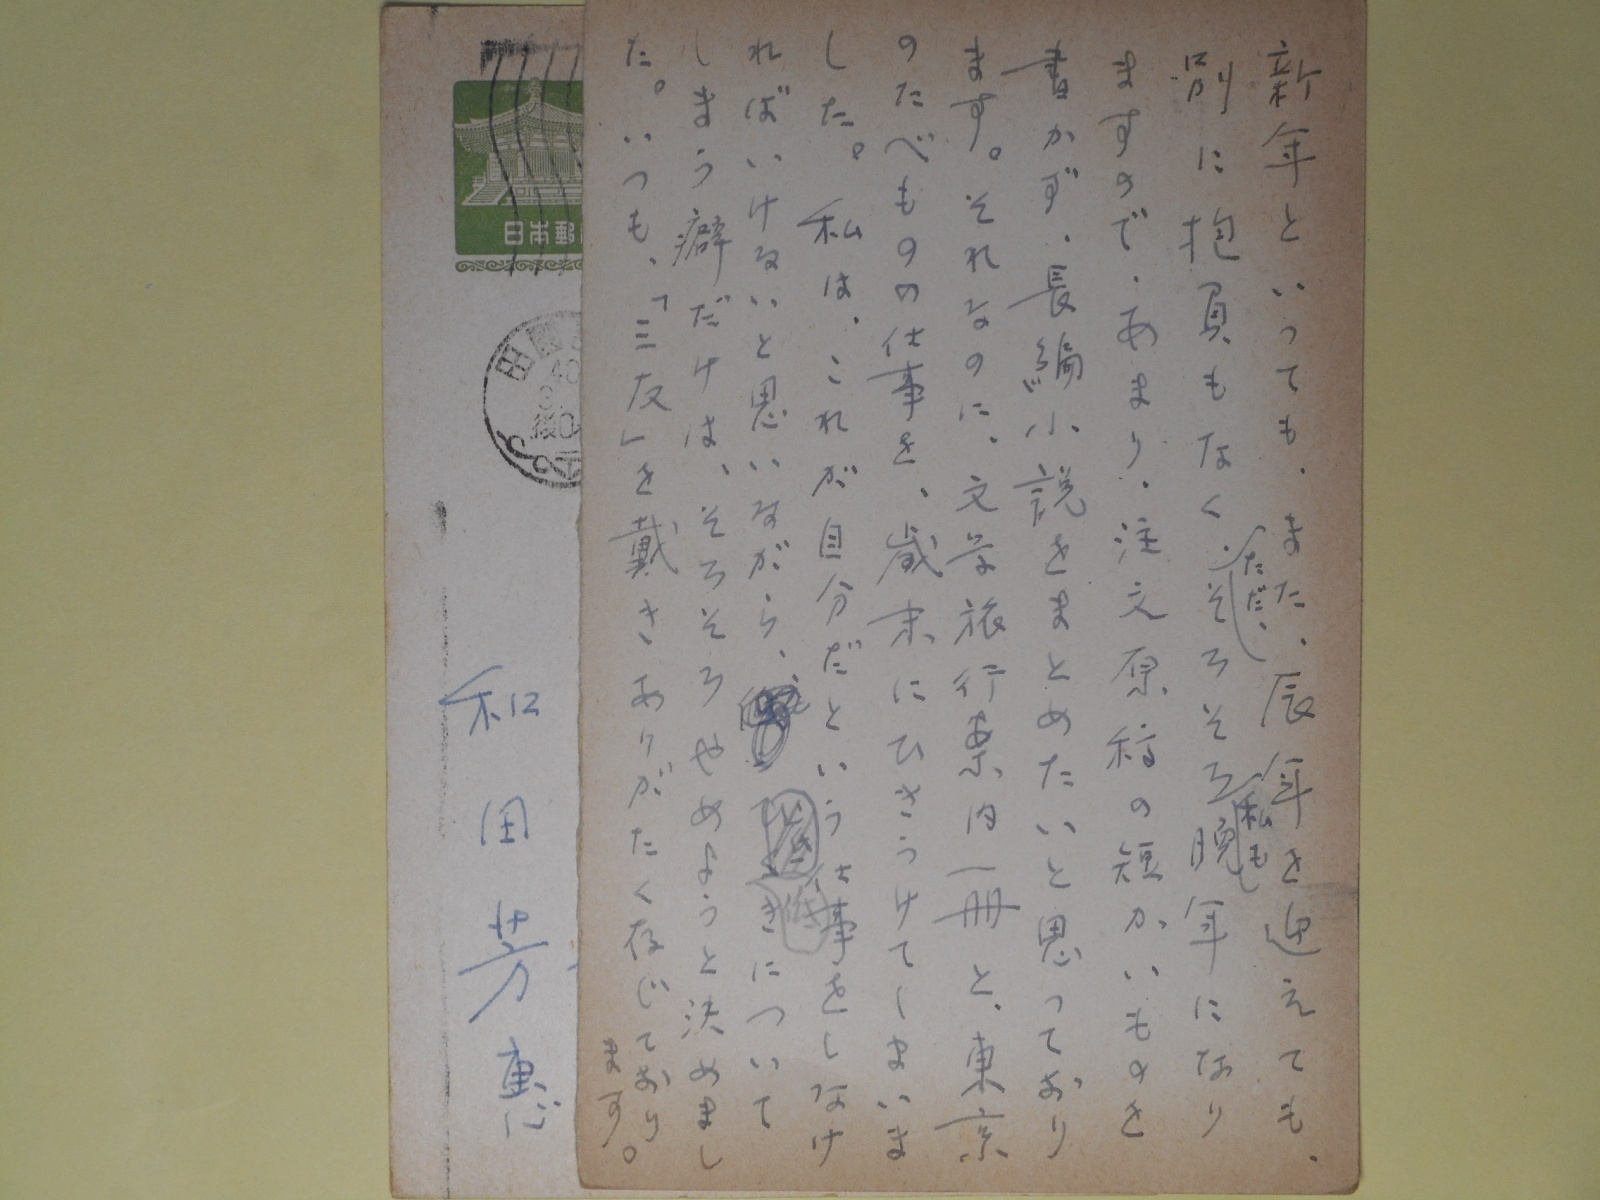 新年といっても、また、辰年を迎えても、
別に抱負もなく、ただ、そろそろ私も晩年になり
ますので、あまり、注文原稿の短かいものを
書かず、長編小説をまとめたいと思っており
ます。それなのに、文学旅行案内一冊と、東京
のたべものの仕事を、歳末にひきうけてしまいま
した。私は、これが自分だという仕事をしなけ
ればいけないと思いながら、きについて
しまう癖だけは、そろそろやめようと決めまし
た。いつも、「三友」を戴きありがたく存じており
ます。
日本郵
田園
40
後0
和田芳恵